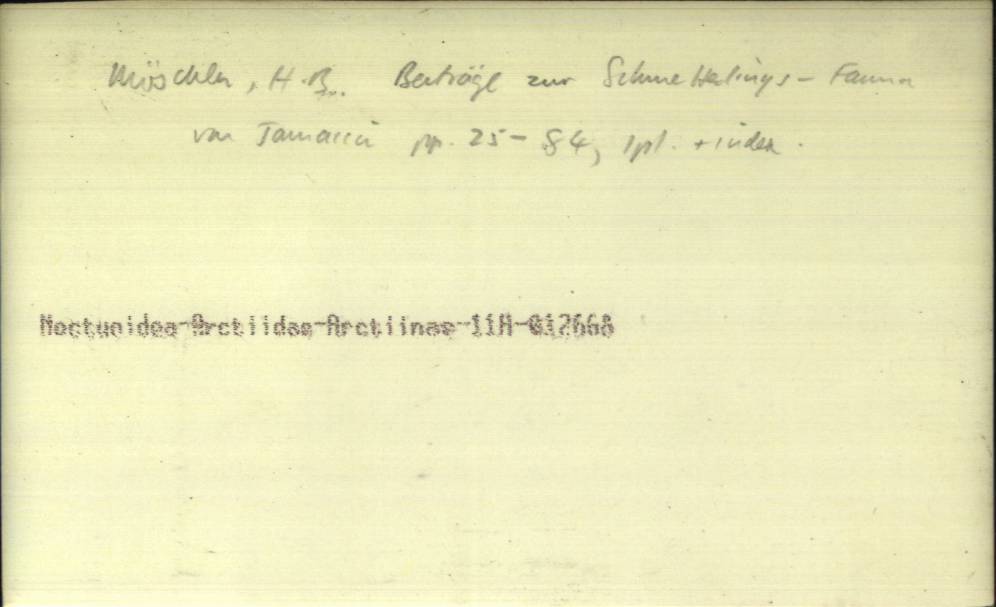 Möschler, H.B. Beiträge zur Schmetterlings-Fauna
von Jamaica pp. 25-84, 1pl. + index.
Noctuoidea-Arctiidae-Arctiinae-11A-G12668